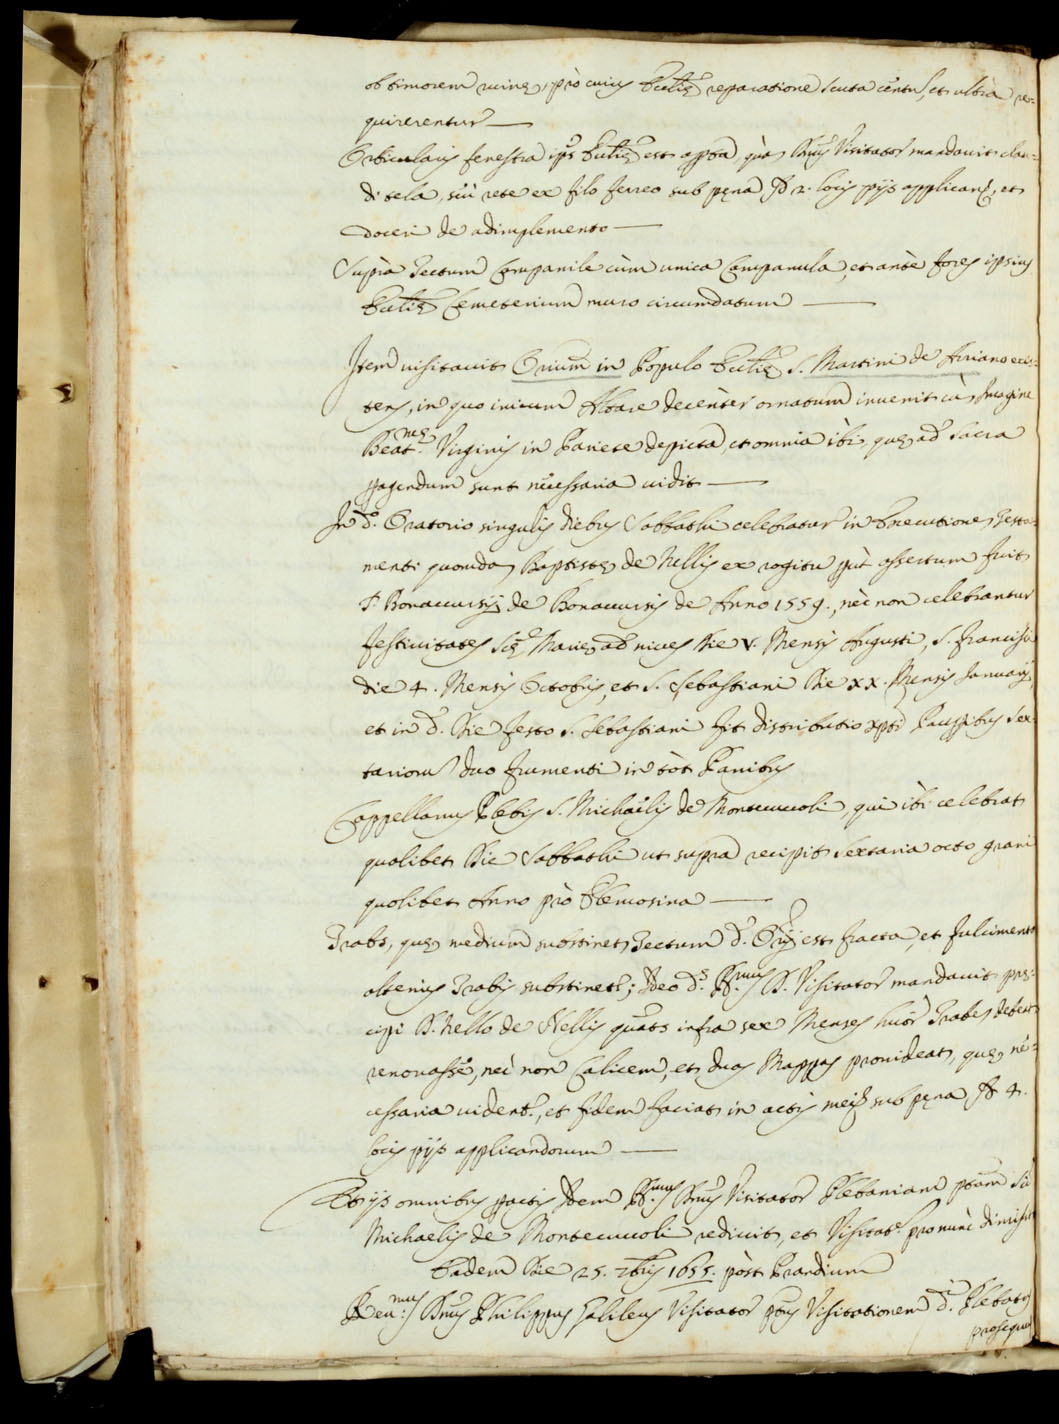 ob timorem ruinę, prò cuius Ecclię reparatione scuta centu, et ultrà re-
quirerentur —
Orbicularis fenestra ips Ecclię est apta, quā Dnus Visitator mandavit clau-
di tela, siù rete ex filo ferreo sub pęna 2. locis pijs applicand, et
doceri de adimplemento —
Suprà Tectum Campanile cùm unica Campanula, et antè fores ipsius
Ecclię Cemeterium muro circumdatum —
Item visitavit Orium in Populo Ecclię S. Martini de Ariano exis-
tens, in quo unicum Altare decentèr ornatum invenit cū Imagine
Beat.nę Virginis in Pariete depicta, et omnia ibi, quę ad Sacra
pagendum sunt necessaria vidit —
In d.º Oratorio singulis diebus Sabbathi celebratur in Executione Testa-
menti quondā Baptistę de Nellis ex rogitu put assertum fuit
S. Bonaccursij de Bonaccursis de Anno 1559., nec non celebrantur
festivitates Sctę Marię ad nives Die V. Mensis Augusti, S. Francisci
die 4. Mensis Octobris, et S. Sebastiani Die XX. Mensis Januarij,
et in d. Die festo S. Sebastiani fit distributio xpti Paupibus Sex-
tariorū duo frumenti in tòt Panibus
Cappellanus Plebis S. Michaelis de Montecuccoli, qui ibi celebrat
quolibet Die Sabbathi ut supra recipit Sextaria octo grani
quolibet Anno prò Elemosina —
Trabs, quę medium substinet Tectum d. Orij est fracta, et fulcimento
alterius Trabis substinet.; Ideo d.s R.mus D. Visitator mandavit pre-
cipi D. Nello de Nellis quats infra sex Menses hmōi Trabes debeat
renovasse, nec non Calicem, et duas Mappas provideat, quę ne-
cessaria vident., et fidem faciat in actis meis sub pęna 4.
locis pijs applicandorum —
Et ijs omnibus pactis Idem R.mus Dnus Visitator Plebaniam ptam Sti
Michaelis de Montecuccoli redivit, et Visitat. pro nunc dimisit
Eadem Die 25. 7bris 1655. pòst Prandium
Reu.mus Dnus Philippus Galileus Visitator ptus Visitationem d. Plebatus
prosequen